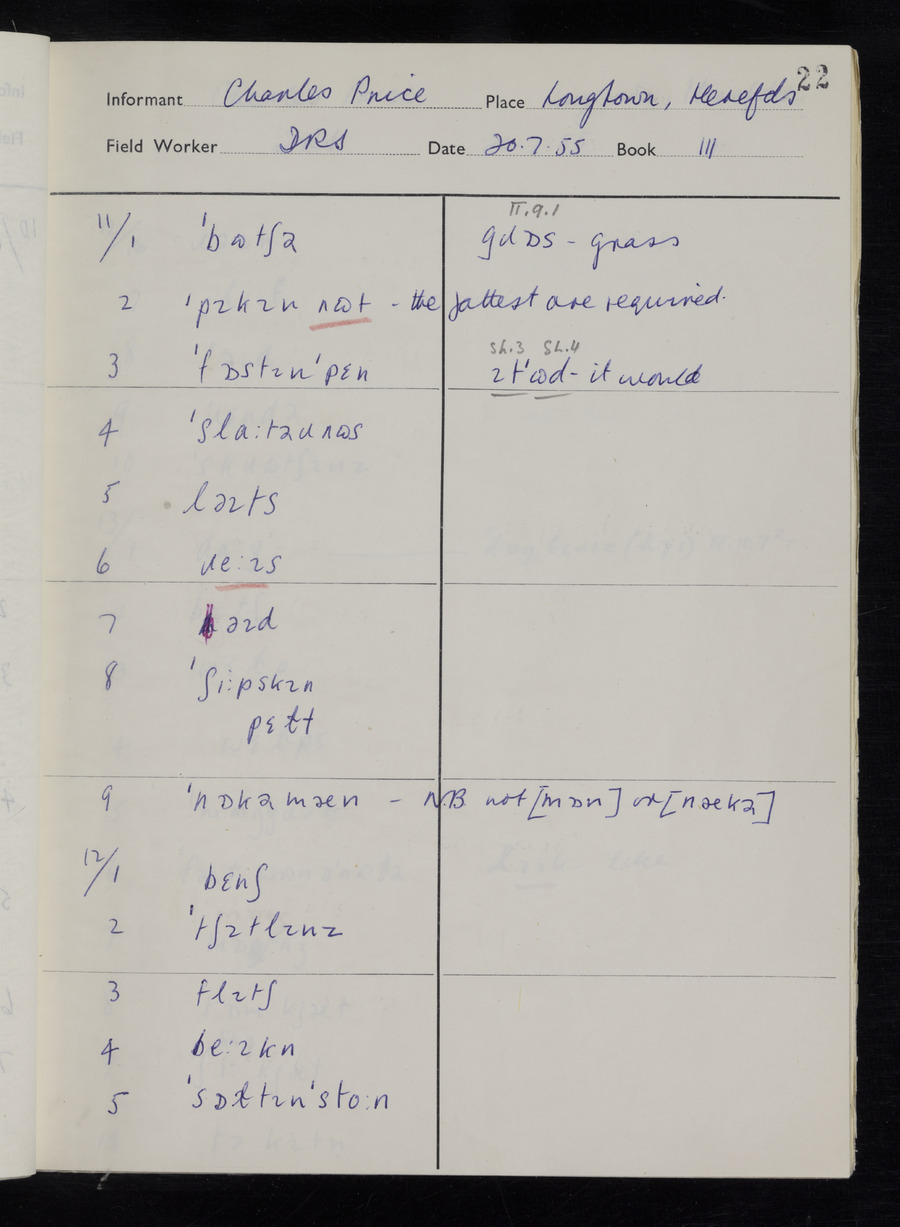 22
Informant Charles Price Place Longtown, Herefds
Field Worker DRS Date 20.7.55 Book III
II.9.1
11/1 ˈbɷtʃə gɹɒs - grass
2 ˈpɪkɪn ɹɷt - the fattest are required.
Sh.3 Sh.4
3 ˈfɒstɪnˈpɛn ɪtˈɷd - it would
4 ˈslɑ:təɹɷs
5 ləɪts
6 ɹe:ɪs
7 əɪd
8 ˈʃi:pskɪn
pɛɫt
9 ˈnɒkəmæn - NB not [mɒn] or [nækə]
12/1 bɛnʃ
2 ˈtʃɪtlɪnz
3 flɪtʃ
4 be:ɪkn
5 ˈsɒɫtɪnˈsto:n